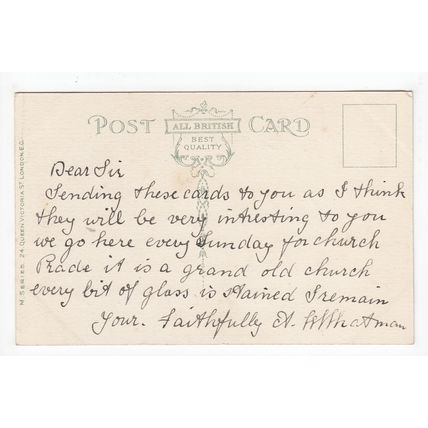 POST CARD
ALL BRITISH
BEST
QUALITY
M. SERIES. 24 QUEEN VICTORIA ST LONDON E.C.
Dear Sir
Sending these cards to you as I think
they will be very intresting to you
we go here every Sunday for church
Prade it is a grand old church
every bit of glass is stained I remain
Your. Faithfully A. Whatman